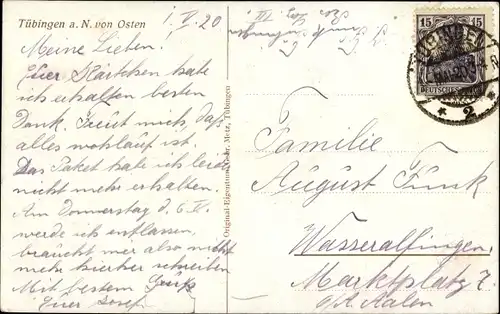 Tübingen a. N. von Osten
1. V. 20
Meine Lieben.
Euer Kärtchen habe
ich erhalten besten
Dank. Freut mich, daß
alles wohlauf ist.
Das Paket habe ich leider
nicht mehr erhalten.
Am Donnerstag d. 6. V.
werde ich entlassen,
braucht mir also nicht
mehr hierher schreiben
Mit bestem Gruß
Euer Josef.
Original-Eigentum Metz, Tübingen
15 15
DEUTSCHES
TÜBINGEN
* 2 *
Familie
August Funk
Wasseralfingen
Marktplatz 7
O/A Aalen